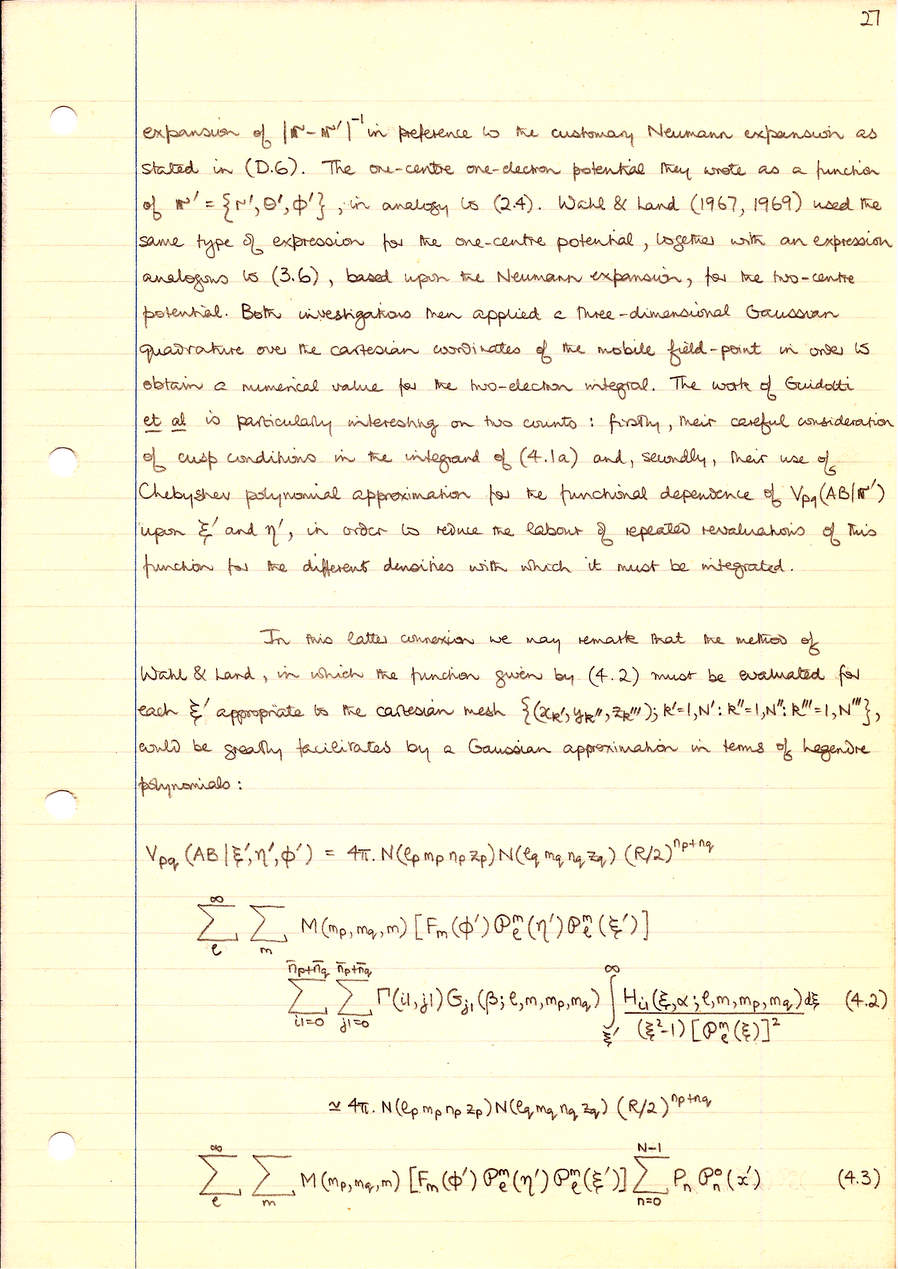 27
expansion of |𝐫-𝐫′|⁻¹ in preference to the customary Neumann expansion as
stated in (D.6). The one-centre one-electron potential they wrote as a function
of 𝐫′ = {r′, θ′, φ′}, in analogy to (2.4). Wahl & Land (1967, 1969) used the
same type of expression for the one-centre potential, together with an expression
analogous to (3.6), based upon the Neumann expansion, for the two-centre
potential. Both investigations then applied a three-dimensional Gaussian
quadrature over the cartesian coordinates of the mobile field-point in order to
obtain a numerical value for the two-electron integral. The work of Guidotti
et al is particularly interesting on two counts: firstly, their careful consideration
of cusp conditions in the integrand of (4.1a) and, secondly, their use of
Chebyshev polynomial approximation for the functional dependence of Vpq(AB|𝐫′)
upon ξ′ and η′, in order to reduce the labour of repeated revaluations of this
function for the different densities with which it must be integrated.
In this latter connexion we may remark that the method of
Wahl & Land, in which the function given by (4.2) must be evaluated for
each ξ′ appropriate to the cartesian mesh {(xk′, yk″, zk‴); k′=1,N′: k″=1,N″: k‴=1,N‴},
would be greatly facilitated by a Gaussian approximation in terms of Legendre
polynomials:
Vpq (AB|ξ′,η′,φ′) = 4π. N(ℓp mp np zp) N(ℓq mq nq zq) (R/2)^(np+nq)
∑_ℓ^∞ ∑_m M(mp,mq,m) [Fm(φ′) 𝒫ℓ^m(η′) 𝒫ℓ^m(ξ′)]
∑_(i1=0)^(n̄p+n̄q) ∑_(j1=0)^(n̄p+n̄q) Γ(i1,j1) Gj1(β; ℓ,m,mp,mq) ∫_ξ′^∞ Hi1(ξ,α; ℓ,m,mp,mq)dξ / (ξ²-1)[𝒫ℓ^m(ξ)]² (4.2)
≃ 4π. N(ℓp mp np zp) N(ℓq mq nq zq) (R/2)^(np+nq)
∑_ℓ^∞ ∑_m M(mp,mq,m) [Fm(φ′) 𝒫ℓ^m(η′) 𝒫ℓ^m(ξ′)] ∑_(n=0)^(N-1) Pn 𝒫n^o(x′) (4.3)